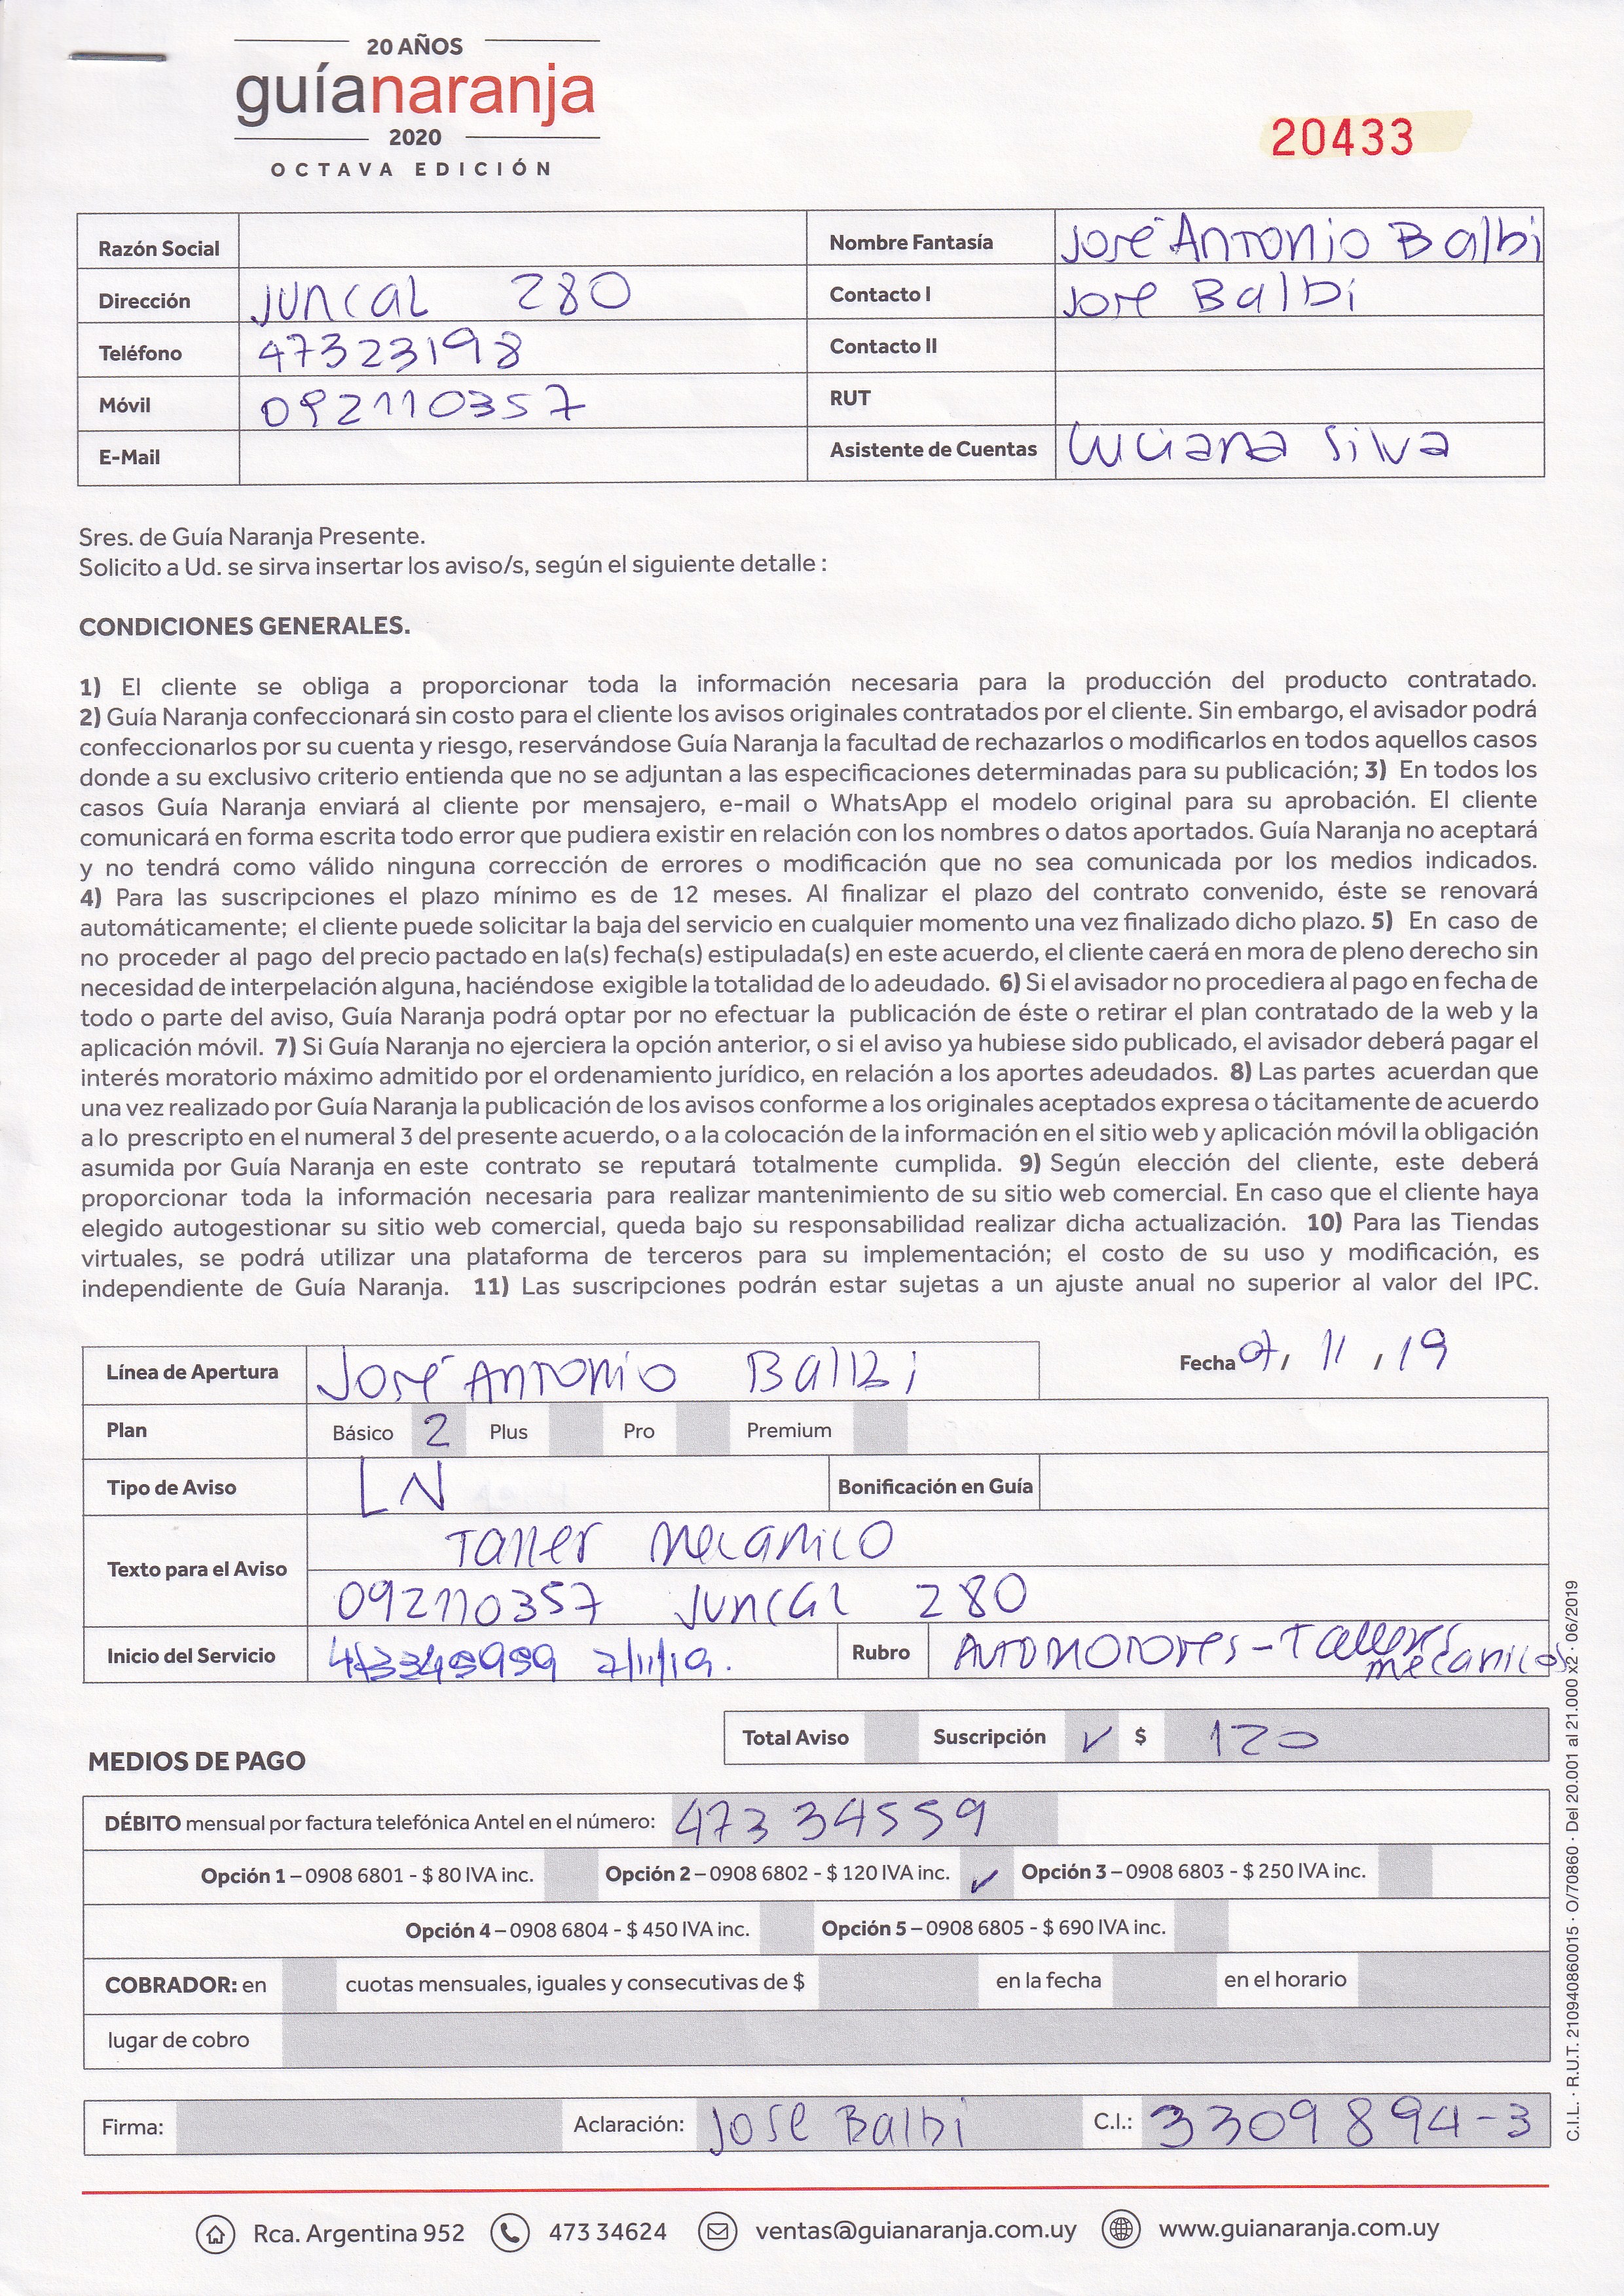 20 AÑOS
guíanaranja
2020
OCTAVA EDICIÓN
20433
Razón Social
Nombre Fantasía José Antonio Balbi
Dirección Juncal 280
Contacto I José Balbi
Teléfono 47323198
Contacto II
Móvil 092110357
RUT
E-Mail
Asistente de Cuentas Luciana Silva
Sres. de Guía Naranja Presente.
Solicito a Ud. se sirva insertar los aviso/s, según el siguiente detalle :
CONDICIONES GENERALES.
1) El cliente se obliga a proporcionar toda la información necesaria para la producción del producto contratado.
2) Guía Naranja confeccionará sin costo para el cliente los avisos originales contratados por el cliente. Sin embargo, el avisador podrá
confeccionarlos por su cuenta y riesgo, reservándose Guía Naranja la facultad de rechazarlos o modificarlos en todos aquellos casos
donde a su exclusivo criterio entienda que no se adjuntan a las especificaciones determinadas para su publicación; 3) En todos los
casos Guía Naranja enviará al cliente por mensajero, e-mail o WhatsApp el modelo original para su aprobación. El cliente
comunicará en forma escrita todo error que pudiera existir en relación con los nombres o datos aportados. Guía Naranja no aceptará
y no tendrá como válido ninguna corrección de errores o modificación que no sea comunicada por los medios indicados.
4) Para las suscripciones el plazo mínimo es de 12 meses. Al finalizar el plazo del contrato convenido, éste se renovará
automáticamente; el cliente puede solicitar la baja del servicio en cualquier momento una vez finalizado dicho plazo. 5) En caso de
no proceder al pago del precio pactado en la(s) fecha(s) estipulada(s) en este acuerdo, el cliente caerá en mora de pleno derecho sin
necesidad de interpelación alguna, haciéndose exigible la totalidad de lo adeudado. 6) Si el avisador no procediera al pago en fecha de
todo o parte del aviso, Guía Naranja podrá optar por no efectuar la publicación de éste o retirar el plan contratado de la web y la
aplicación móvil. 7) Si Guía Naranja no ejerciera la opción anterior, o si el aviso ya hubiese sido publicado, el avisador deberá pagar el
interés moratorio máximo admitido por el ordenamiento jurídico, en relación a los aportes adeudados. 8) Las partes acuerdan que
una vez realizado por Guía Naranja la publicación de los avisos conforme a los originales aceptados expresa o tácitamente de acuerdo
a lo prescripto en el numeral 3 del presente acuerdo, o a la colocación de la información en el sitio web y aplicación móvil la obligación
asumida por Guía Naranja en este contrato se reputará totalmente cumplida. 9) Según elección del cliente, este deberá
proporcionar toda la información necesaria para realizar mantenimiento de su sitio web comercial. En caso que el cliente haya
elegido autogestionar su sitio web comercial, queda bajo su responsabilidad realizar dicha actualización. 10) Para las Tiendas
virtuales, se podrá utilizar una plataforma de terceros para su implementación; el costo de su uso y modificación, es
independiente de Guía Naranja. 11) Las suscripciones podrán estar sujetas a un ajuste anual no superior al valor del IPC.
Línea de Apertura José Antonio Balbi
Fecha 07 / 11 / 19
Plan Básico 2 Plus Pro Premium
Tipo de Aviso LN Bonificación en Guía
Texto para el Aviso
Taller Mecanico
092110357 Juncal 280
Inicio del Servicio 7/11/19. Rubro Automotores - Talleres
mecanicos
Total Aviso Suscripción ✓ $ 120
MEDIOS DE PAGO
DÉBITO mensual por factura telefónica Antel en el número: 473 34559
Opción 1 – 0908 6801 - $ 80 IVA inc. Opción 2 – 0908 6802 - $ 120 IVA inc. ✓ Opción 3 – 0908 6803 - $ 250 IVA inc.
Opción 4 – 0908 6804 - $ 450 IVA inc. Opción 5 – 0908 6805 - $ 690 IVA inc.
COBRADOR: en cuotas mensuales, iguales y consecutivas de $ en la fecha en el horario
lugar de cobro
Firma: Aclaración: José Balbi C.I.: 3309894-3
C.I.L. · R.U.T. 210940860015 · O/70860 · Del 20.001 al 21.000 x2 · 06/2019
Rca. Argentina 952 473 34624 ventas@guianaranja.com.uy www.guianaranja.com.uy